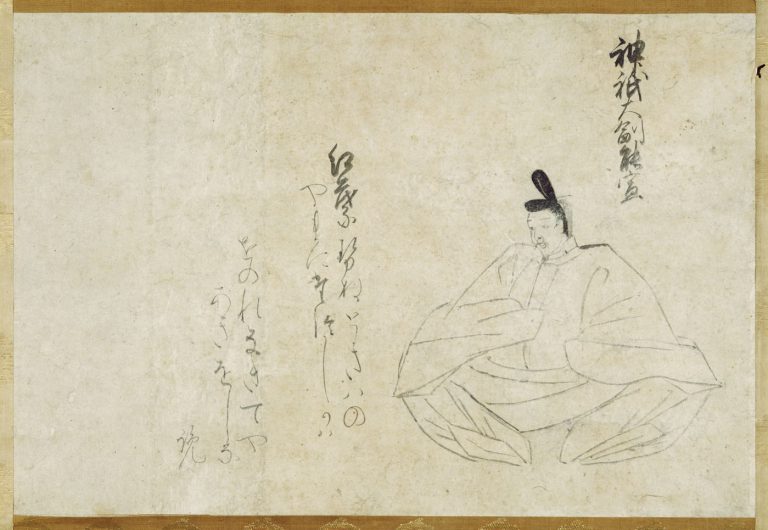 神祇大副能宣
紅葉勢ぬときハの
やまにすむしかハ
をのれなきてや
あきをしる
覧